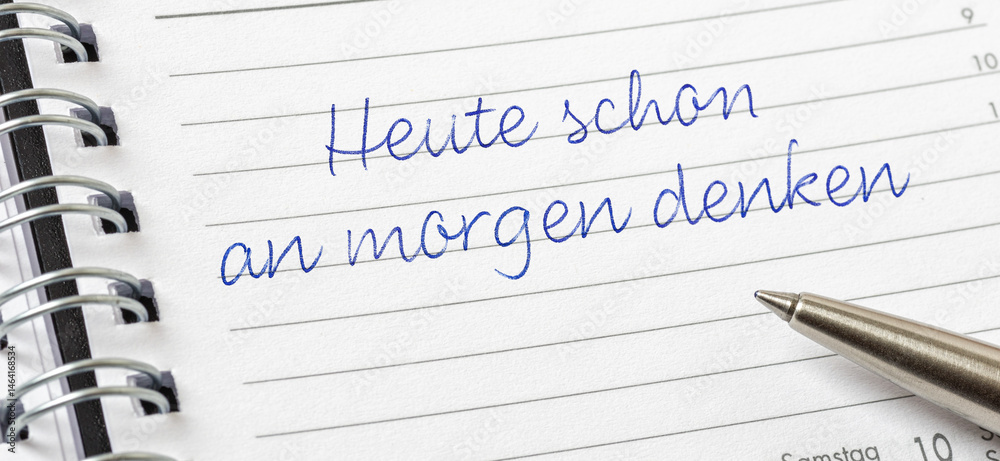 9
10
1
Heute schon
an morgen denken
Samstag 10
Adobe Stock | #1464168534